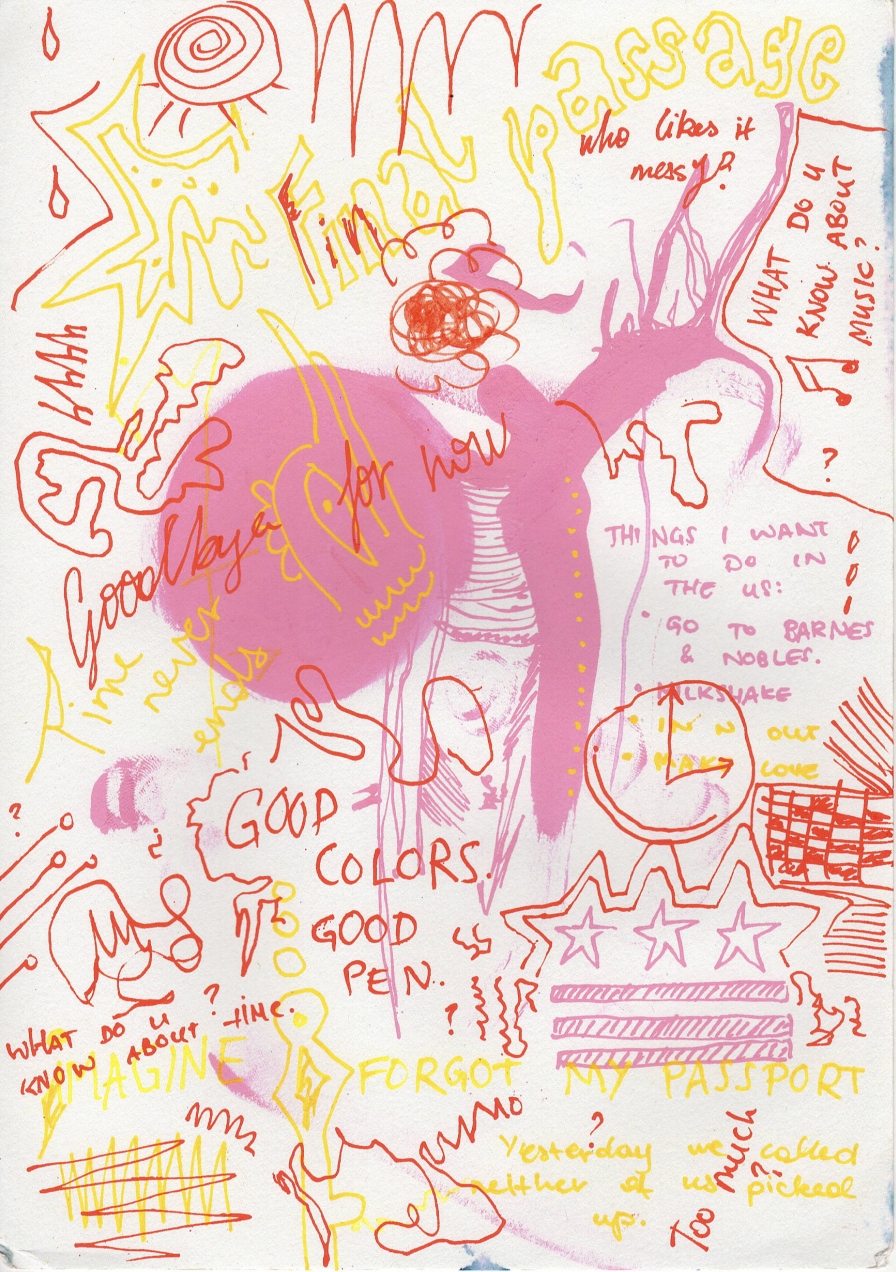 Final passage
who likes it
messy?
WHAT DO U
KNOW ABOUT
MUSIC?
?
Goodbye for now
Time
never
ends
THINGS I WANT
TO DO IN
THE US:
• GO TO BARNES
& NOBLES.
• MILKSHAKE
• IN N OUT
• MAKE LOVE
?
¿
GOOD
COLORS.
GOOD
PEN.
?
WHAT DO U
KNOW ABOUT time.
?
IMAGINE FORGOT MY PASSPORT
?
Yesterday we called
neither of us picked
up.
Too much?